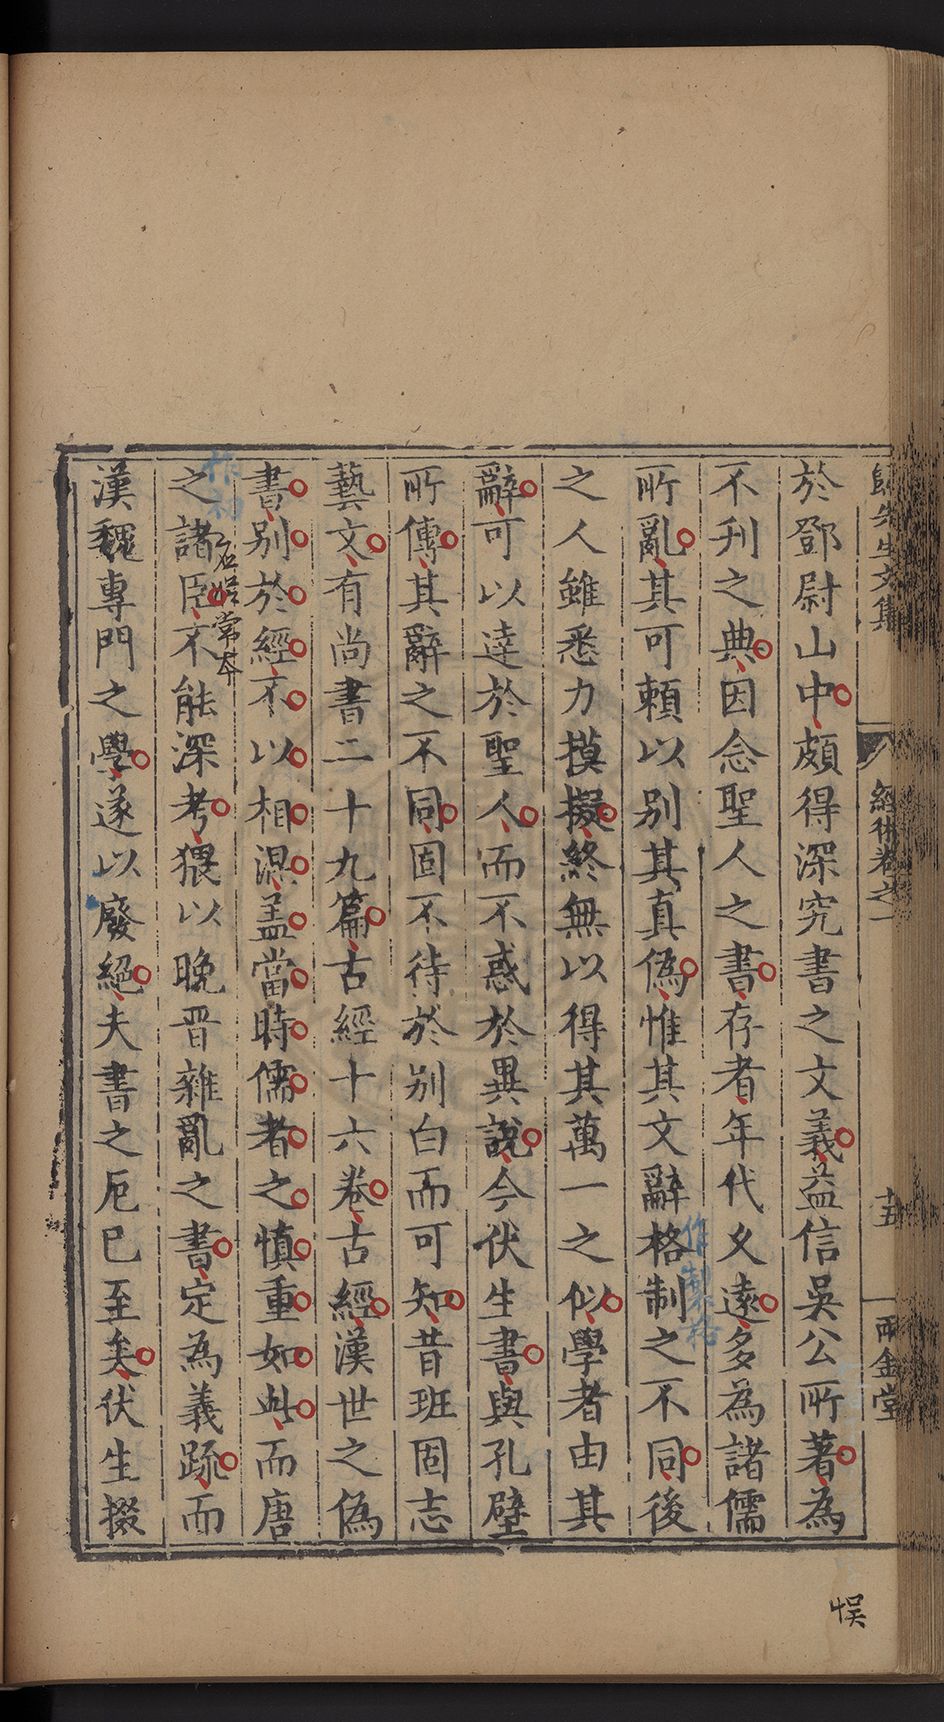 歸先生文集 經休卷之一 十五 兩金堂
於鄧尉山中頗得深究書之文義益信吳公所著為
不刋之典因念聖人之書存者年代久遠多為諸儒
所亂其可賴以别其真偽惟其文辭格制之不同後
作制格
之人雖悉力摸擬終無以得其萬一之似學者由其
辭可以逹於聖人而不惑於異說今伏生書與孔壁
所傳其辭之不同固不待於别白而可知昔班固志
藝文有尚書二十九篇古經十六卷古經漢世之偽
書别於經不以相混盖當時儒者之慎重如此而唐
之諸臣不能深考猥以晚晉雜亂之書定為義疏而
作初
漢魏專門之學遂以廢絕夫書之厄已至矣伏生掇
悞